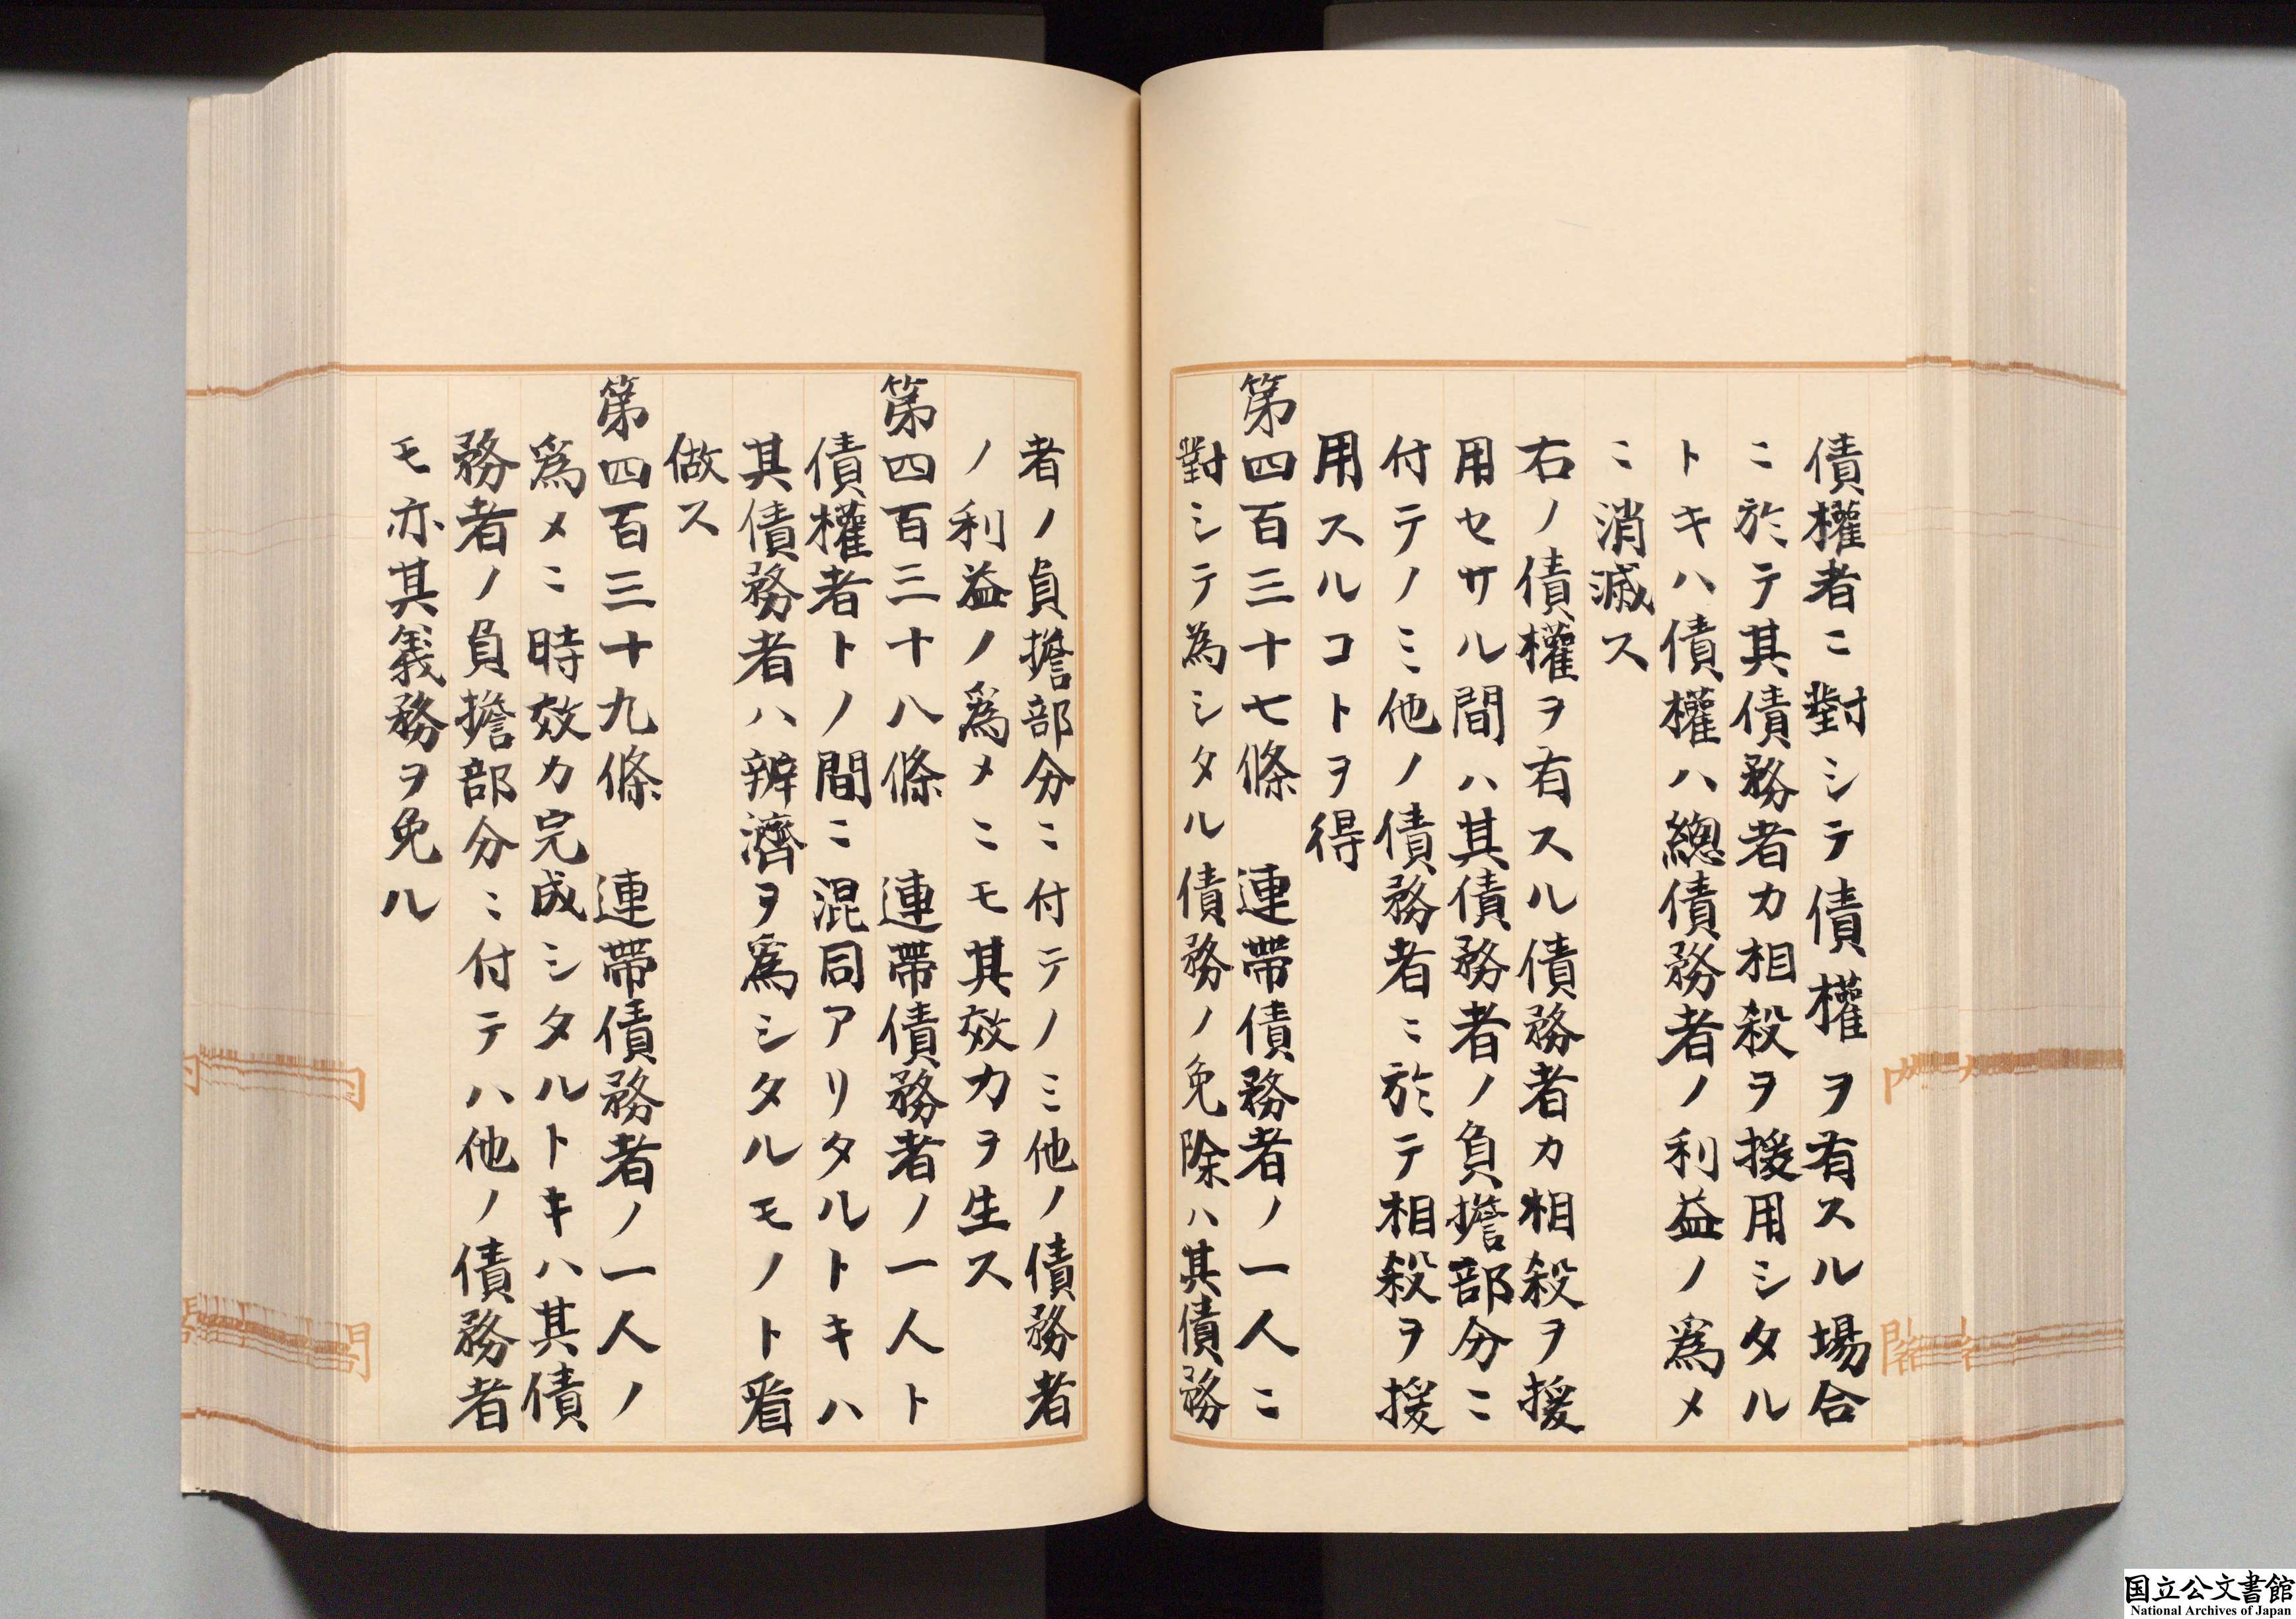 債權者ニ對シテ債權ヲ有スル場合
ニ於テ其債務者カ相殺ヲ援用シタル
トキハ債權ハ總債務者ノ利益ノ爲メ
ニ消滅ス
右ノ債權ヲ有スル債務者カ相殺ヲ援
用セサル間ハ其債務者ノ負擔部分ニ
付テノミ他ノ債務者ニ於テ相殺ヲ援
用スルコトヲ得
第四百三十七條 連帶債務者ノ一人ニ
對シテ為シタル債務ノ免除ハ其債務
者ノ負擔部分ニ付テノミ他ノ債務者
ノ利益ノ爲メニモ其效力ヲ生ス
第四百三十八條 連帶債務者ノ一人ト
債權者トノ間ニ混同アリタルトキハ
其債務者ハ辨濟ヲ爲シタルモノト看
做ス
第四百三十九條 連帶債務者ノ一人ノ
爲メニ時效カ完成シタルトキハ其債
務者ノ負擔部分ニ付テハ他ノ債務者
モ亦其義務ヲ免ル
内閣
国立公文書館
National Archives of Japan